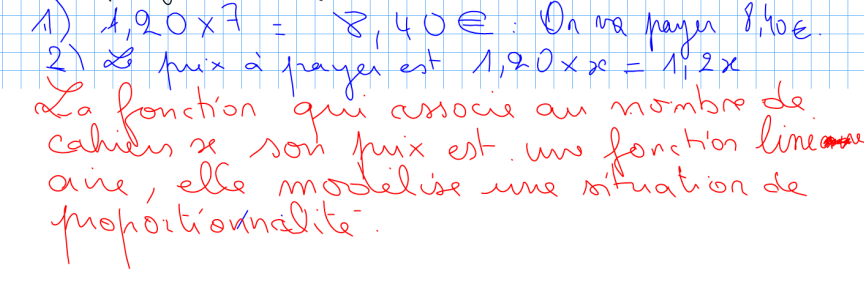 1) 1,20 x 7 = 8,40 € : On va payer 8,40 €.
2) Le prix à payer est 1,20 x x = 1,2x
La fonction qui associe au nombre de
cahiers x son prix est une fonction liné
aire, elle modélise une situation de
proportionnalité.